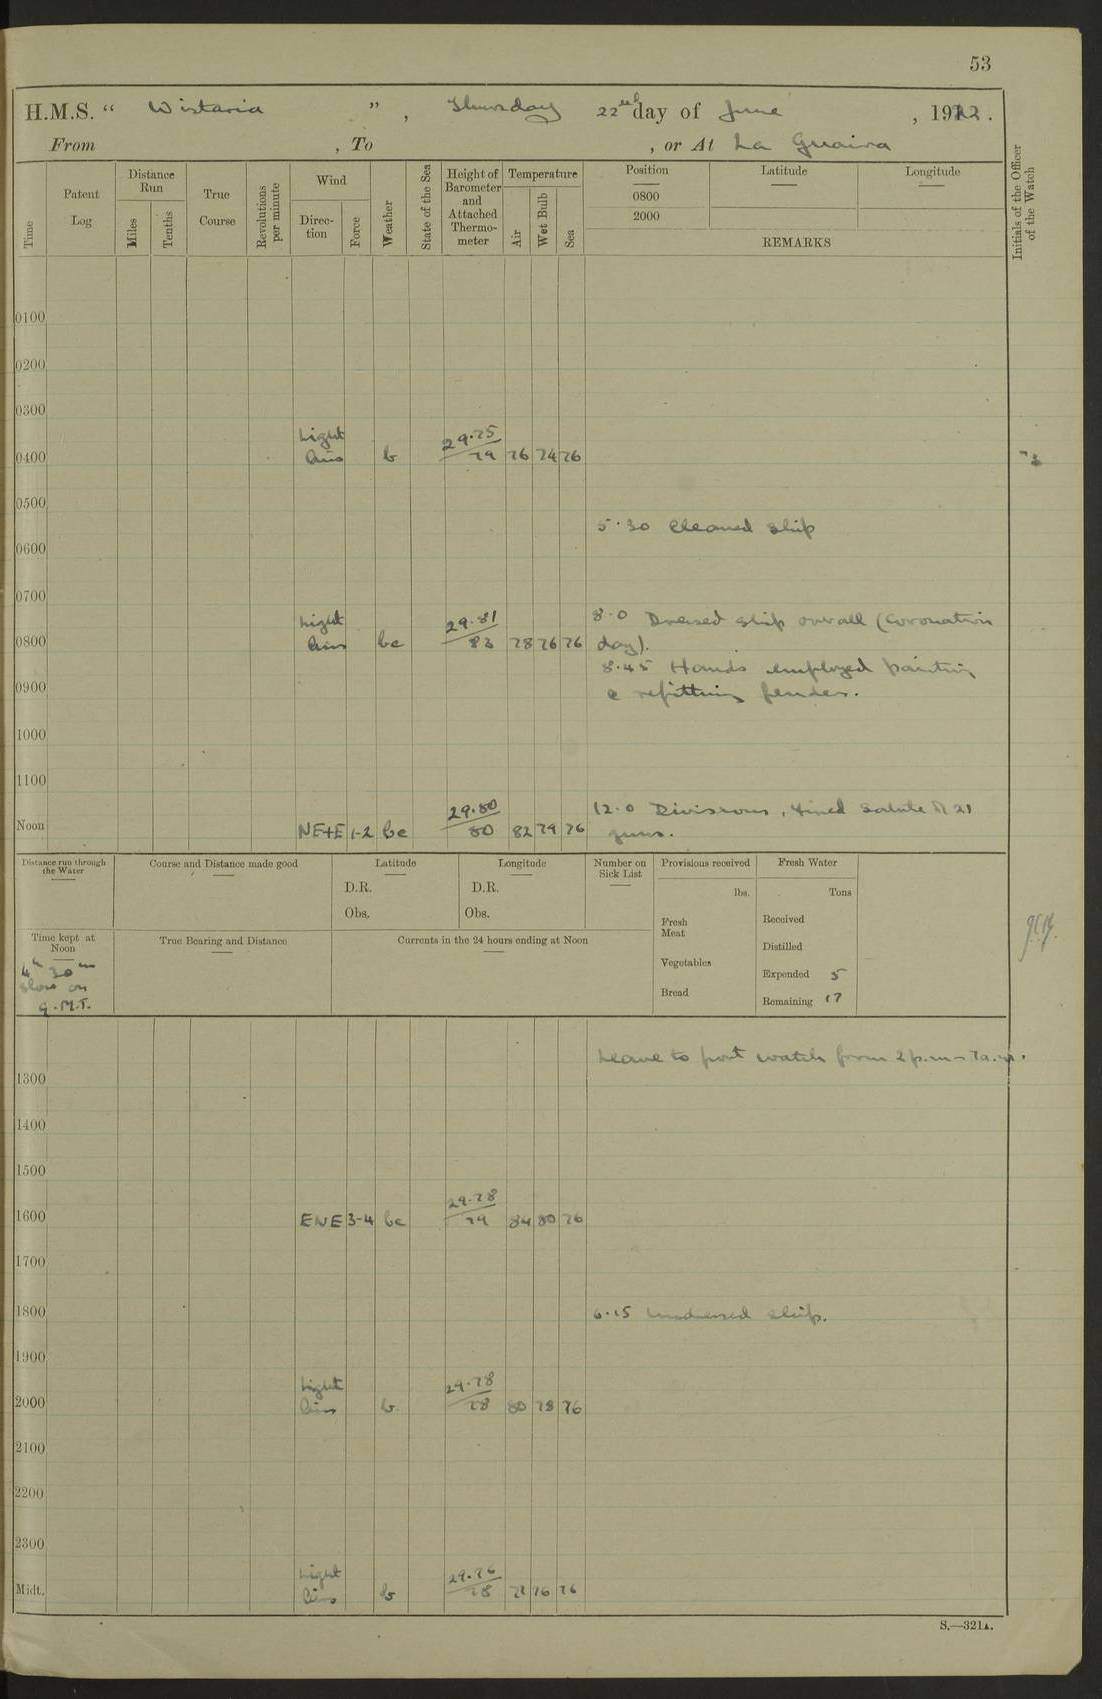 53
H.M.S. “ Wistaria ” , Thursday 22nd day of June , 1922 .
From , To , or At La Guaira
Time
Patent Log
Distance Run
Miles
Tenths
True Course
Revolutions per minute
Wind
Direc-tion
Force
Weather
State of the Sea
Height of Barometer and Attached Thermo-meter
Temperature
Air
Wet Bulb
Sea
Position
0800
2000
Latitude
Longitude
REMARKS
Initials of the Officer of the Watch
0100
0200
0300
Light 29.75
0400 Airs b 79 76 74 76
0500
5.30 Cleaned ship
0600
0700
Light 29.81 8.0 Dressed ship overall (Coronation
0800 Airs bc 83 78 76 76 day).
8.45 Hands employed painting
0900 & refitting fender.
1000
1100
29.80 12.0 Divisions, fired salute of 21
Noon NE+E 1-2 bc 80 82 79 76 guns.
Distance run through the Water
Course and Distance made good
Latitude
D.R.
Obs.
Longitude
D.R.
Obs.
Number on Sick List
Provisions received
lbs.
Fresh Meat
Vegetables
Bread
Fresh Water
Tons
Received
Distilled
Expended 5
Remaining 17
Time kept at Noon
4h 30m
slow on
G.M.T.
True Bearing and Distance
Currents in the 24 hours ending at Noon
Leave to port watch from 2 p.m - 7a.m.
1300
1400
1500
29.78
1600 ENE 3-4 bc 79 84 80 76
1700
1800 6.15 Undressed ship.
1900
Light 29.78
2000 Airs b 78 80 78 76
2100
2200
2300
Light 29.76
Midt. Airs b 78 76 76
S.—321A.